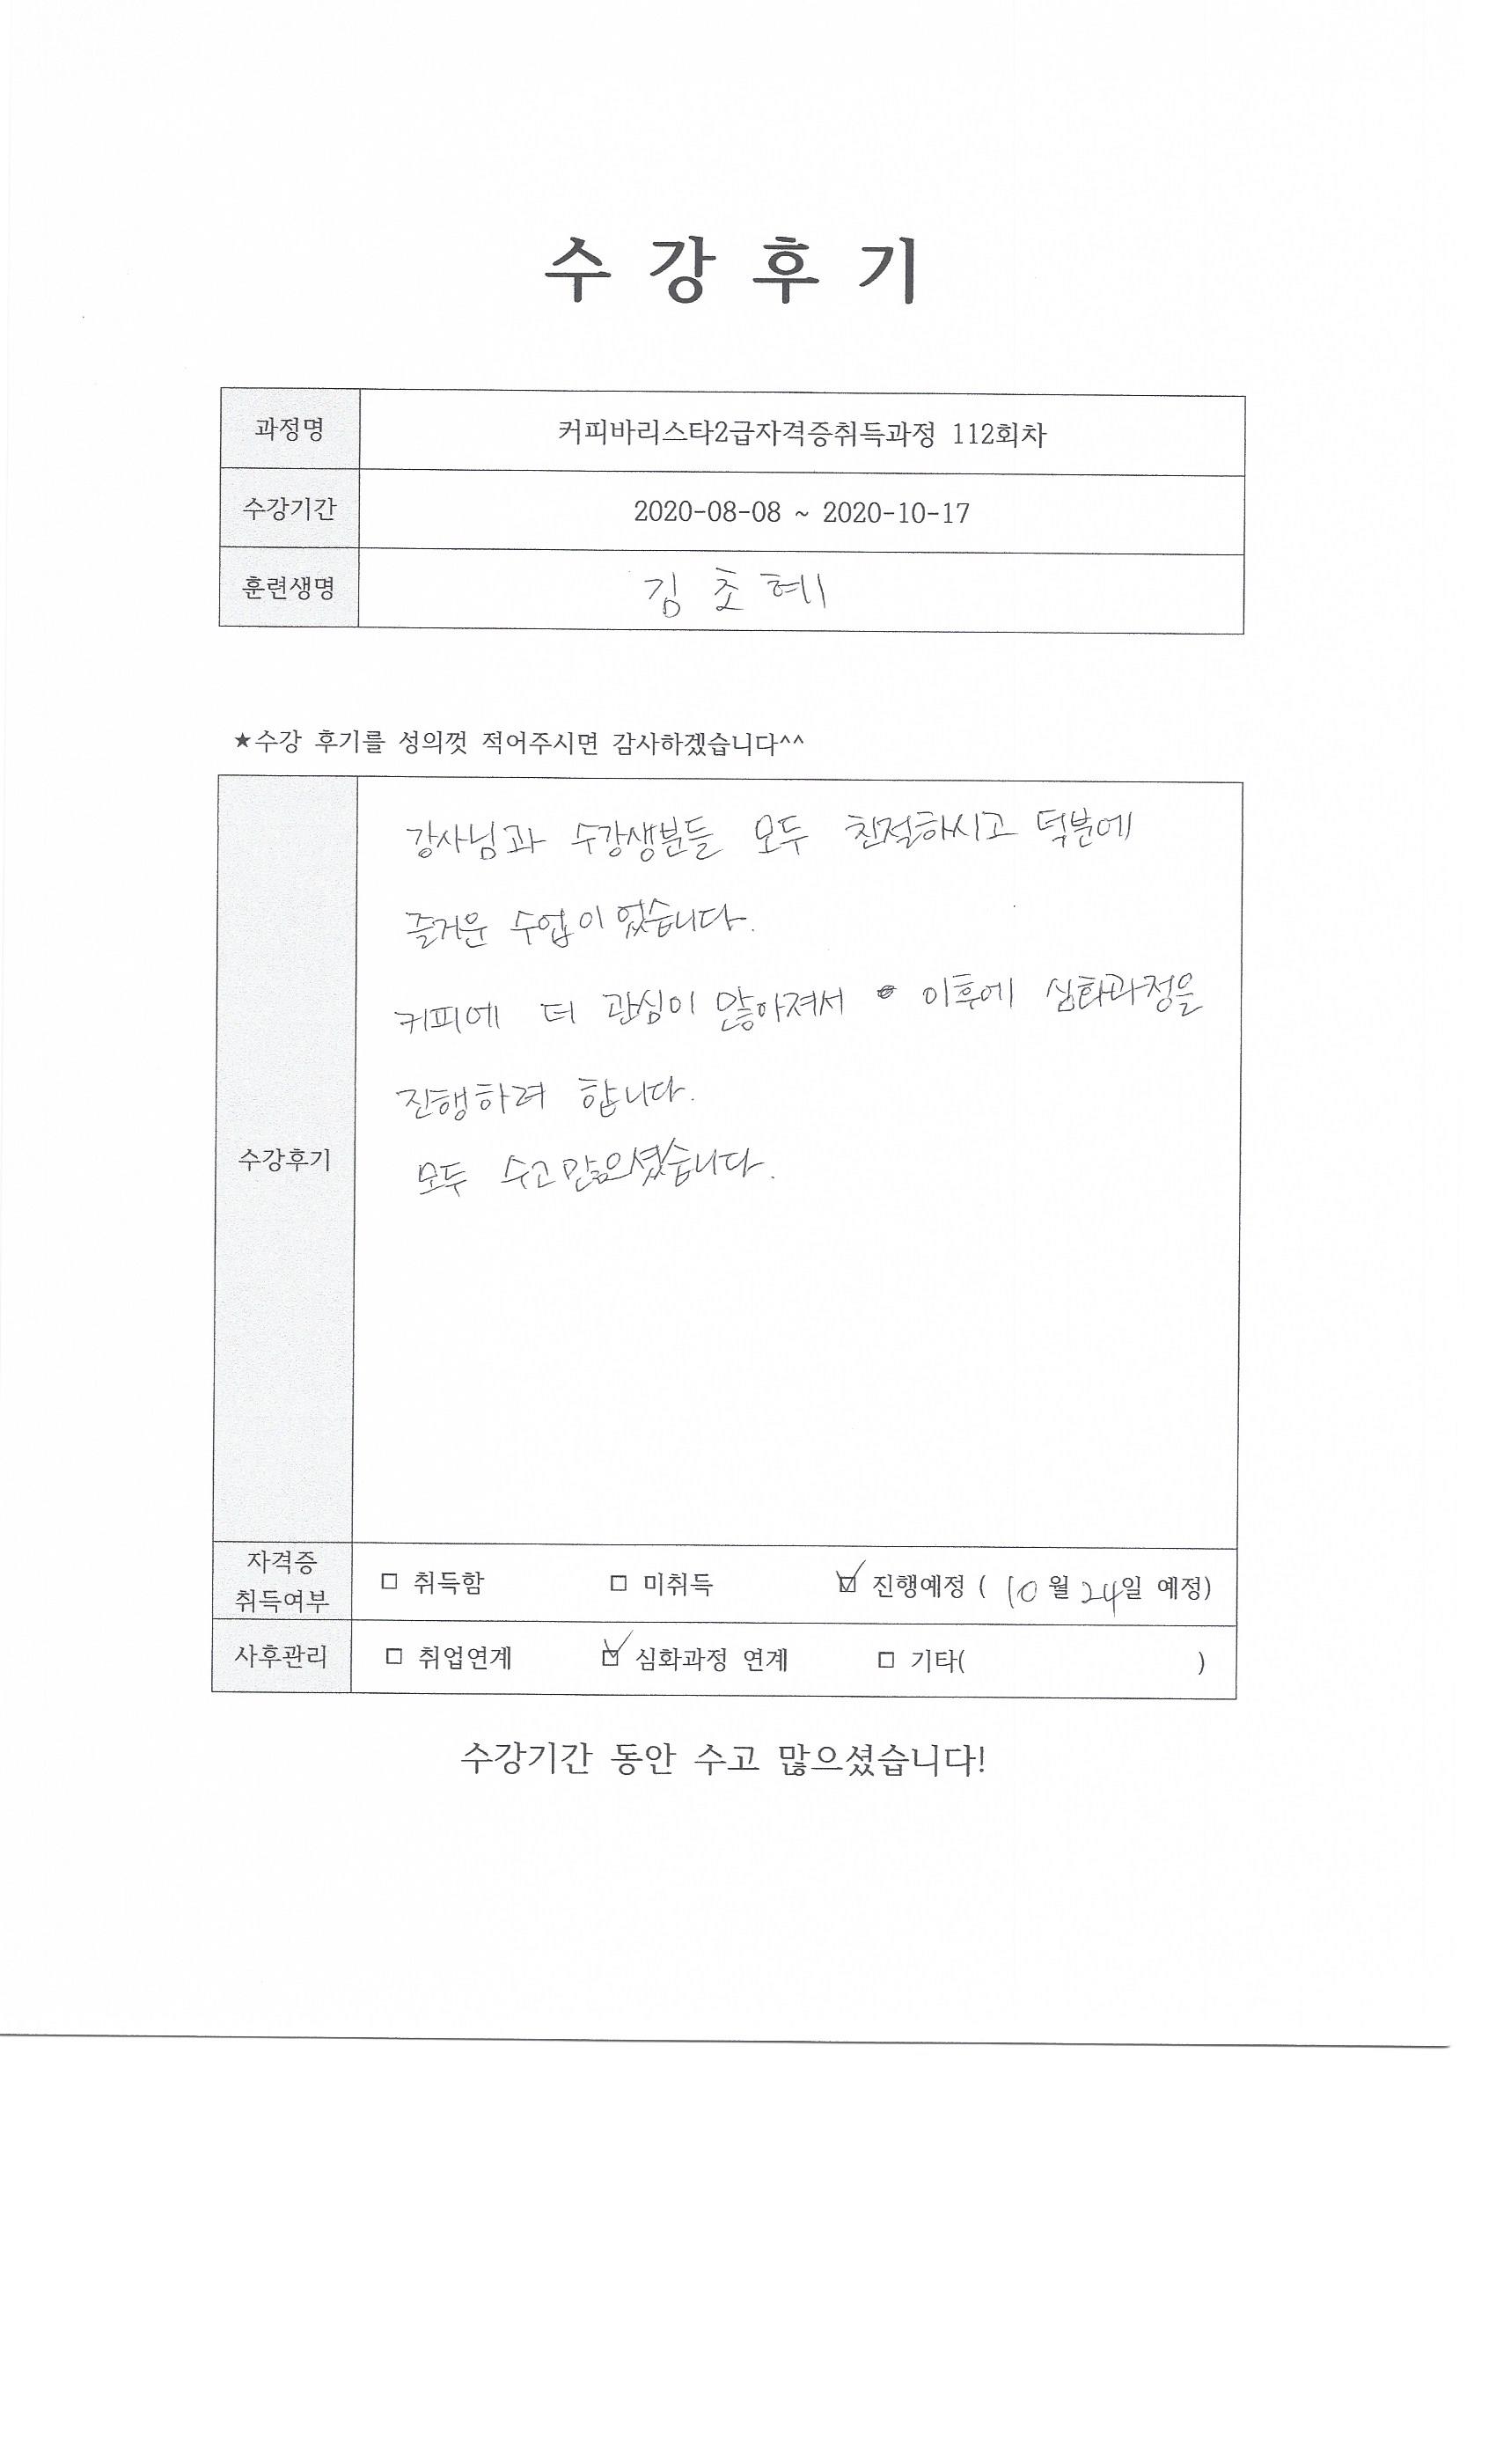 수 강 후 기
과정명 커피바리스타2급자격증취득과정 112회차
수강기간 2020-08-08 ~ 2020-10-17
훈련생명 김 초 혜
★수강 후기를 성의껏 적어주시면 감사하겠습니다^^
강사님과 수강생분들 모두 친절하시고 덕분에
즐거운 수업이었습니다.
커피에 더 관심이 많아져서 이후에 심화과정을
진행하려 합니다.
수강후기
모두 수고많으셨습니다.
자격증
취득여부
□ 취득함 □ 미취득 ☑ 진행예정 ( 10 월 24일 예정)
사후관리 □ 취업연계 ☑ 심화과정 연계 □ 기타( )
수강기간 동안 수고 많으셨습니다!